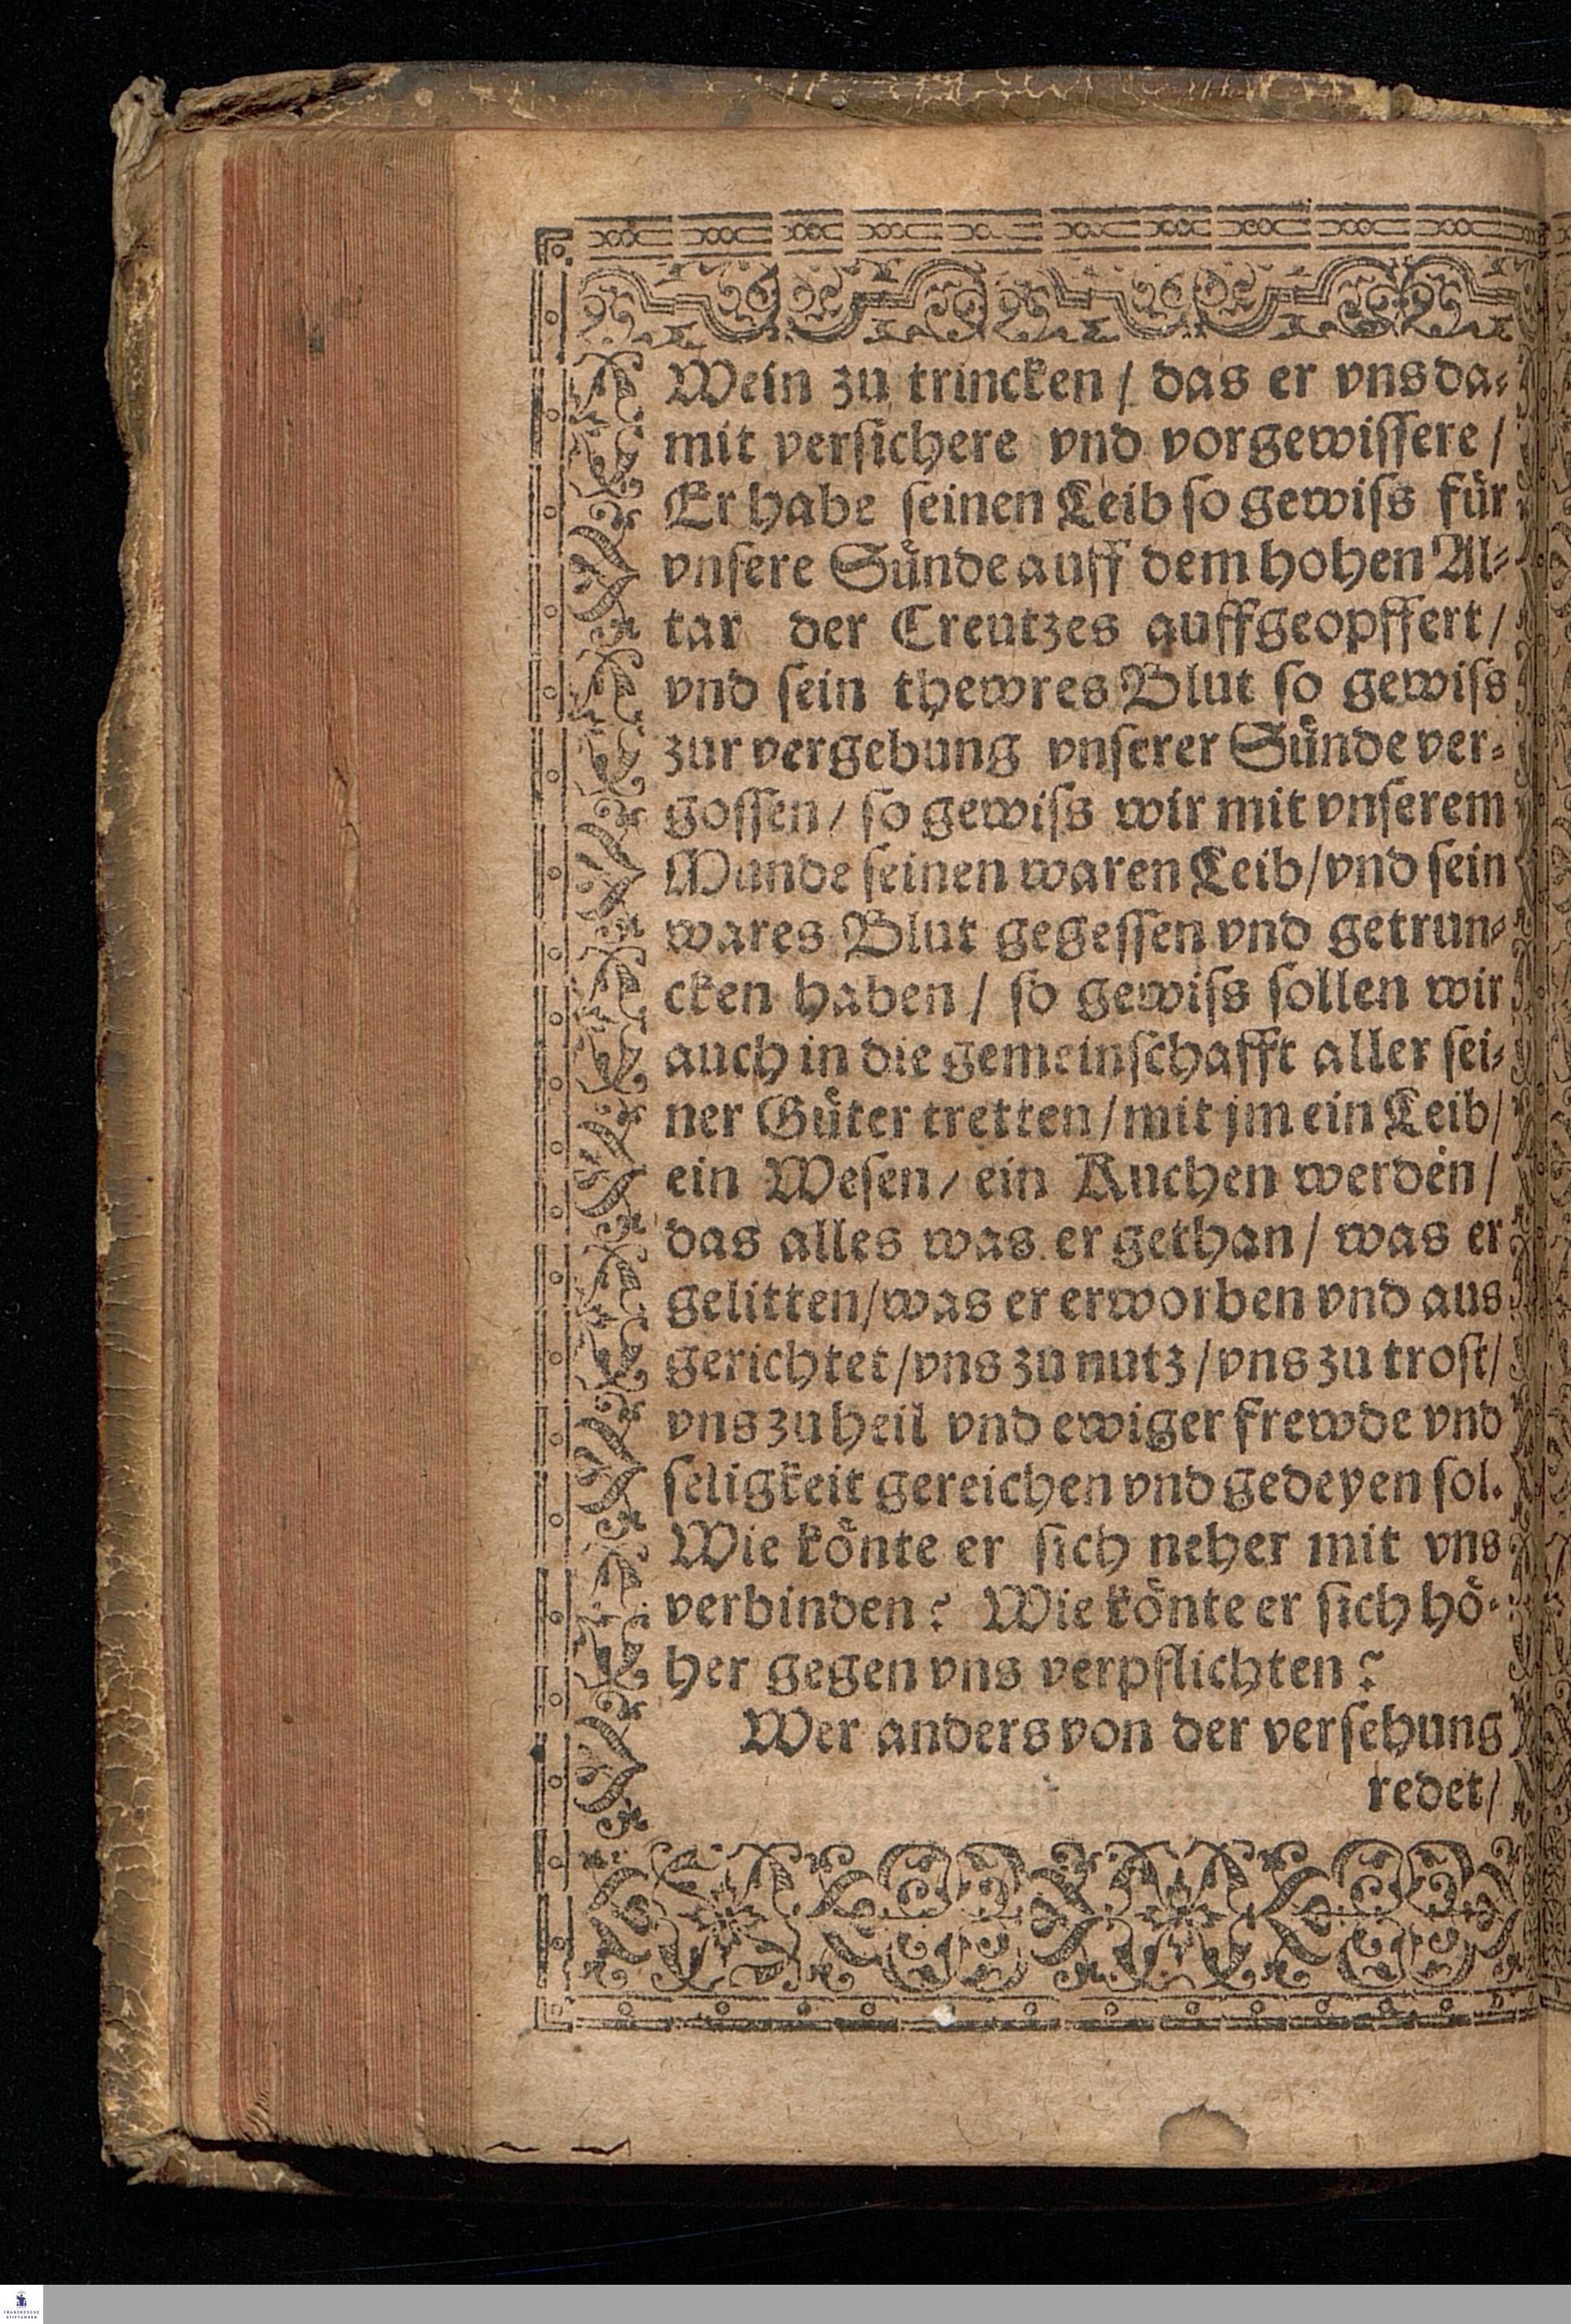 Wein zu trincken / das er vns da-
mit versichere vnd vorgewissere /
Er habe seinen Leib so gewiss für
vnsere Sünde auff dem hohen Al-
tar der Creutzes auffgeopffert /
vnd sein thewres Blut so gewiss
zur vergebung vnserer Sünde ver-
gossen / so gewiss wir mit vnserem
Munde seinen waren Leib / vnd sein
wares Blut gegessen vnd getrun-
cken haben / so gewiss sollen wir
auch in die gemeinschafft aller sei-
ner Güter tretten / mit jm ein Leib /
ein Wesen / ein Kuchen werden /
das alles was er gethan / was er
gelitten / was er erworben vnd aus
gerichtet / vns zu nutz / vns zu trost /
vns zu heil vnd ewiger frewde vnd
seligkeit gereichen vnd gedeyen sol.
Wie könte er sich neher mit vns
verbinden? Wie könte er sich hö-
her gegen vns verpflichten?
Wer anders von der versehung
redet /
FRANCKESCHE
STIFTUNGEN